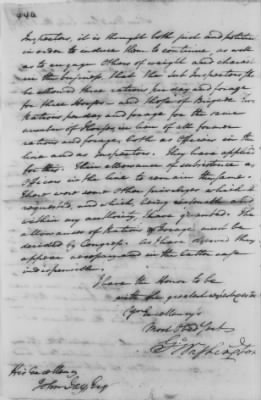 Inspectors, it is thought both just and politic
in order to induce them to continue, as well
as to engage Others of weight and character
in the business, that the Sub Inspectors, &c
be allowed three rations per day and forage
for three Horses — and those of Brigade two
Rations per day and forage for the same
number of Horses, in lieu of all former
rations and forage, both as Officers in the
line and as Inspectors. They have applied
for this. Their allowance of subsistence as
Officers in the line to remain the same.
There were some Other priviledges which they
requested, and which, being reasonable and
within my authority, I have granted. The
allowances of Rations & Forage must be
decided by Congress.
appear
indispensible.
I have the Honor to be
with the greatest respect
Yr Excellency's
Most Obed Servt
Go Washington
His Excellency
John Jay Esqr